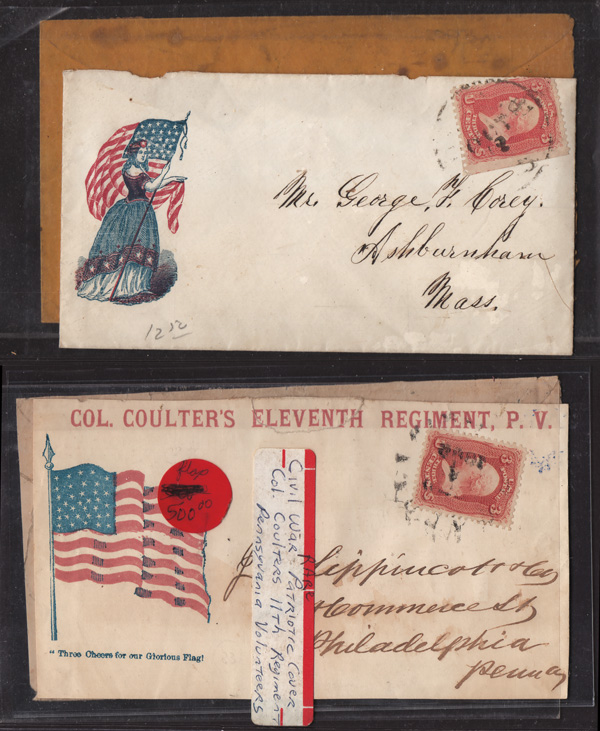 Mr. George, F. Corey.
Ashburnham
Mass.
12 52
COL. COULTER'S ELEVENTH REGIMENT, P. V.
500 00
Civil War - Patriotic Cover
RARE
Col. Coulters 11th Regiment
Pennsylvania Volunteers
" Three Cheers for our Glorious Flag!
Lippincott & Co
Commerce St
Philadelphia
Penna
3
3